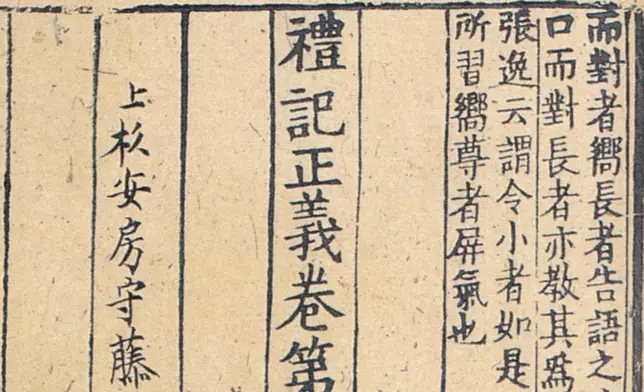 而對者嚮長者告語之
口而對長者亦教其爲
張逸云謂令小者如是
所習嚮尊者屏氣也
禮記正義卷第
上杉安房守藤